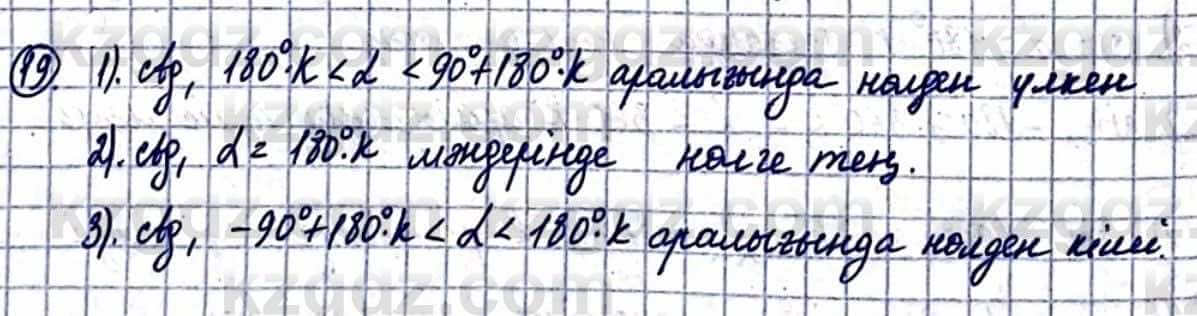 19. 1). ctg, 180°·k < α < 90°+180°·k аралығында нөлден үлкен
2). ctg, α = 180°·k мәндерінде нөлге тең.
3). ctg, -90°+180°·k < α < 180°·k аралығында нөлден кіші.
kzgdz.com